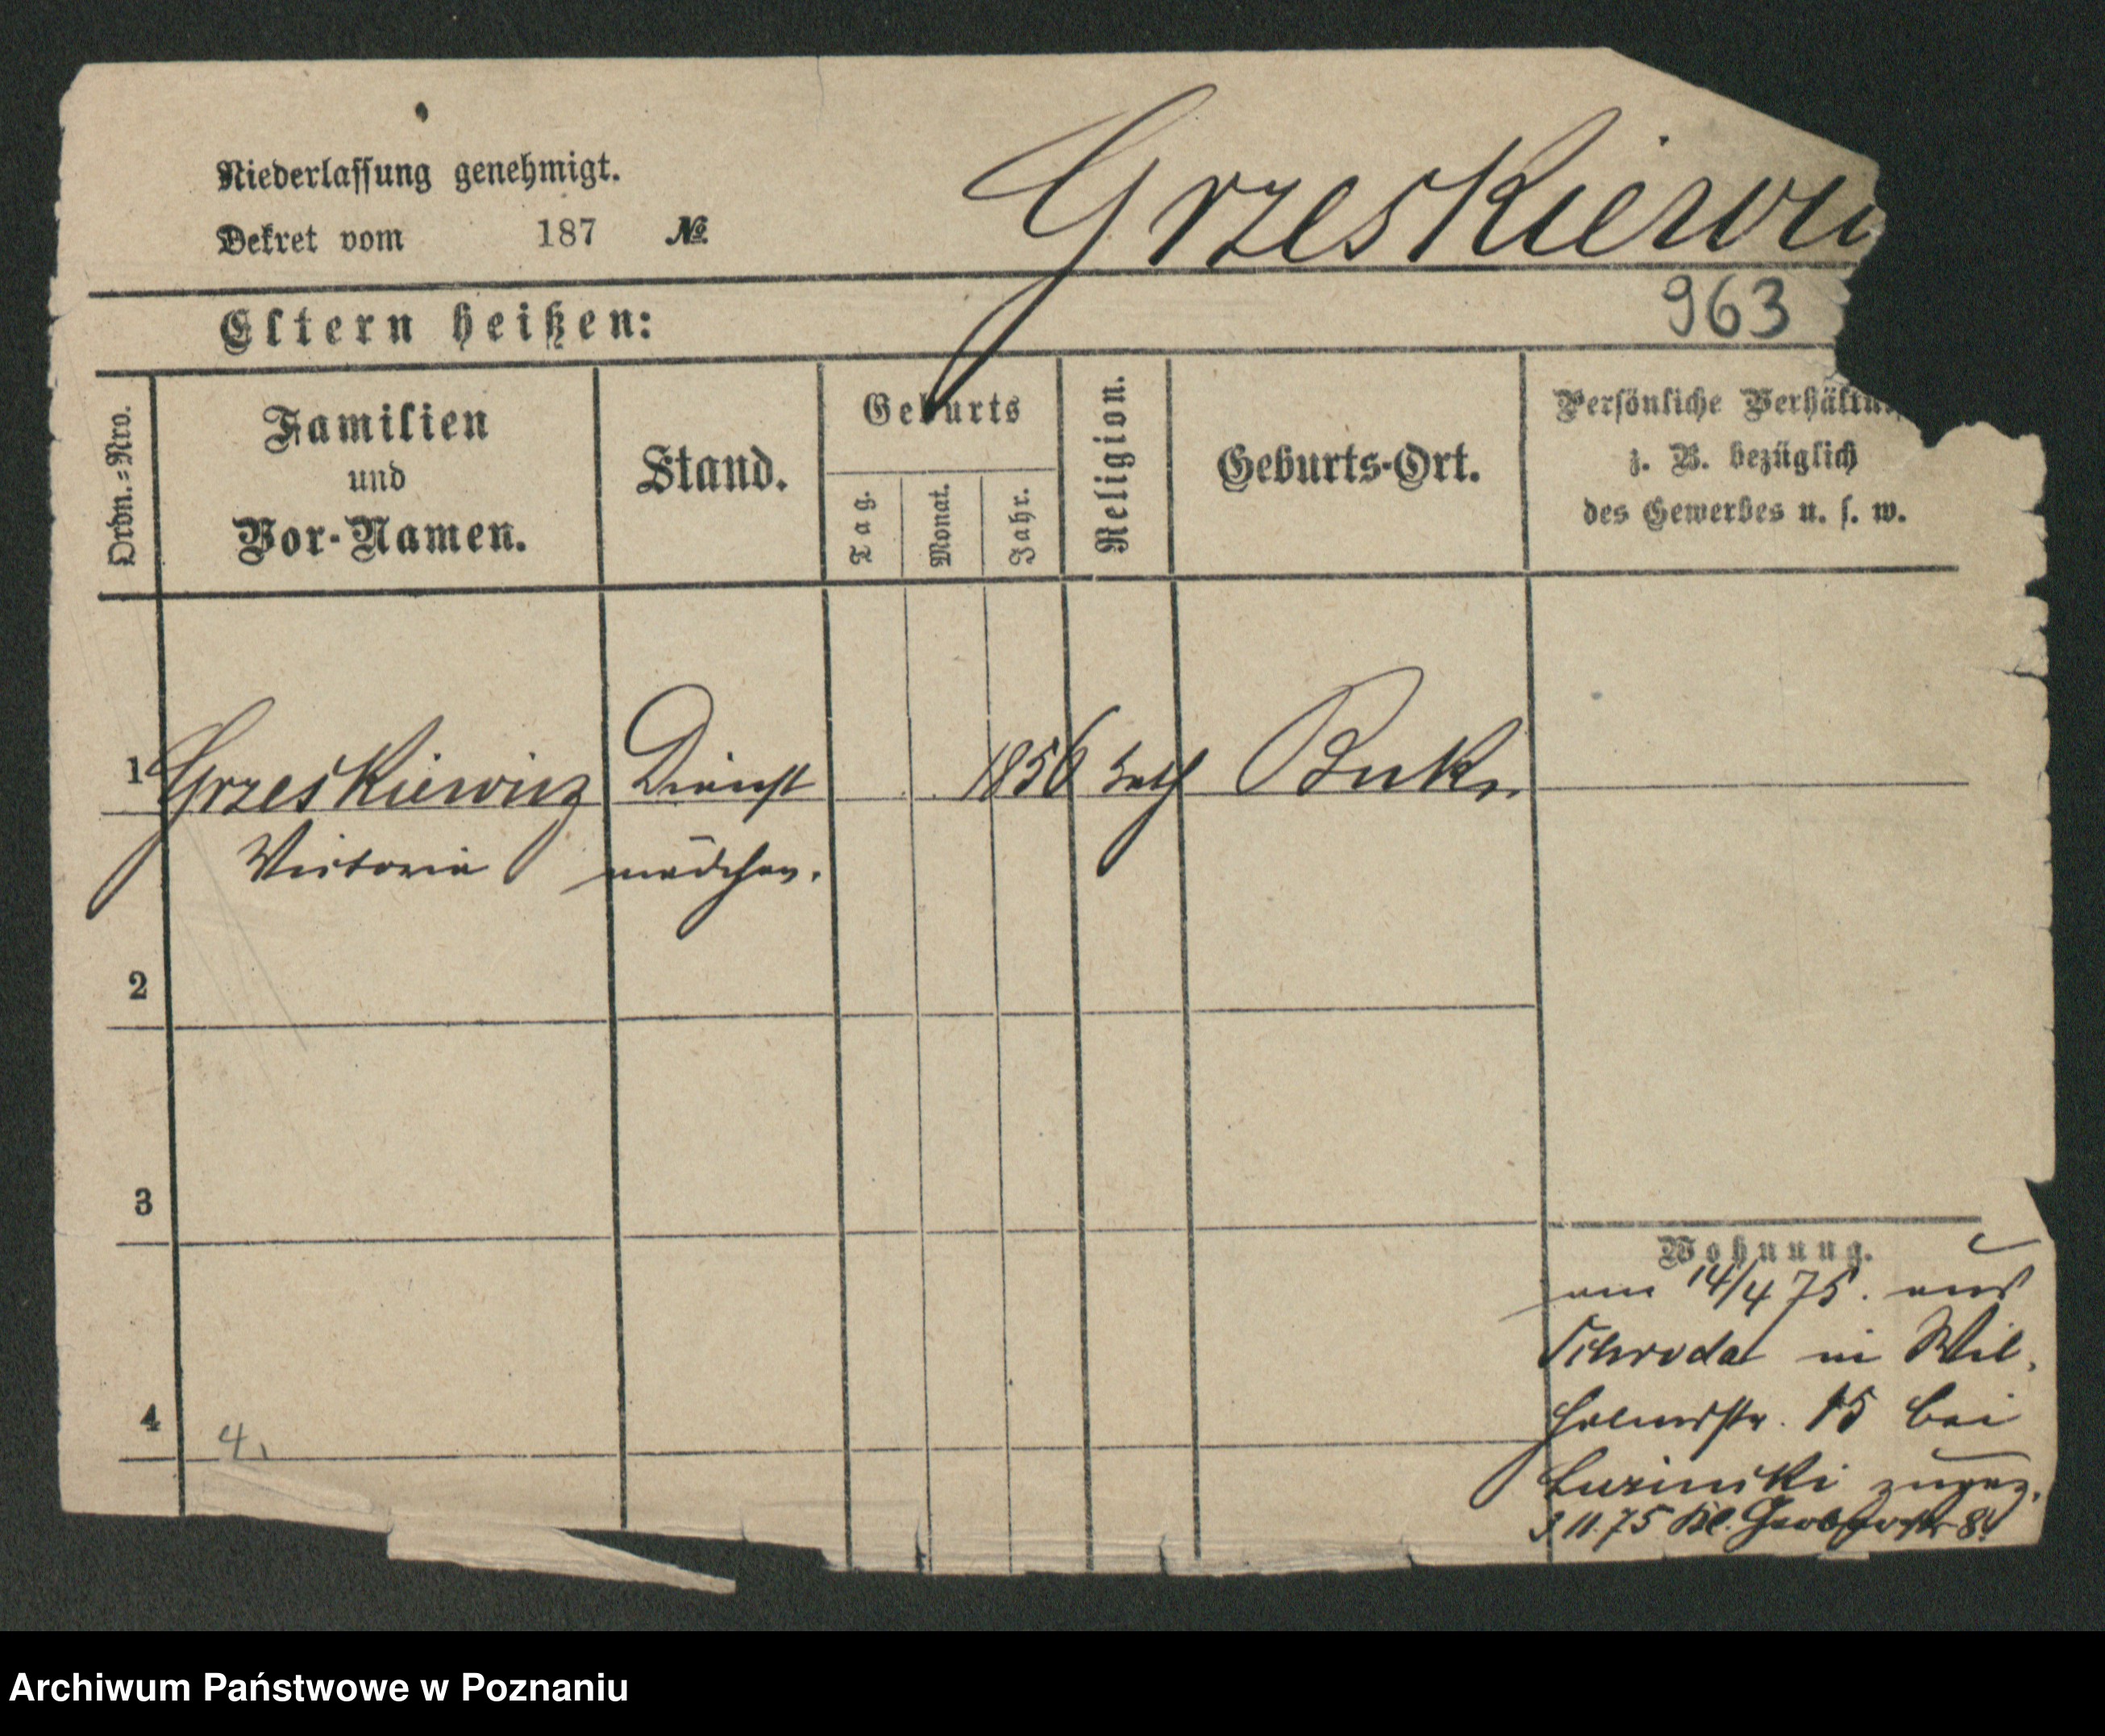 Niederlassung genehmigt.
Dekret vom 187 №
Grzeskiewi
Eltern heißen:
963
Ordn.-Nro.
Familien
und
Vor-Namen.
Stand.
Geburts
Tag.
Monat.
Jahr.
Religion.
Geburts-Ort.
Persönliche Verhältn
z. B. bezüglich
des Gewerbes u. s. w.
1 Grzeskiewicz Dienst 1856 kath Buk
Victoria mädchen.
2
3
4
4.
Wohnung.
am 14/4 75. aus
Schroda in Wil-
helmstr. 15 bei
zugez.
3 11. 75 Kl. Gerberstr 8.
Archiwum Państwowe w Poznaniu